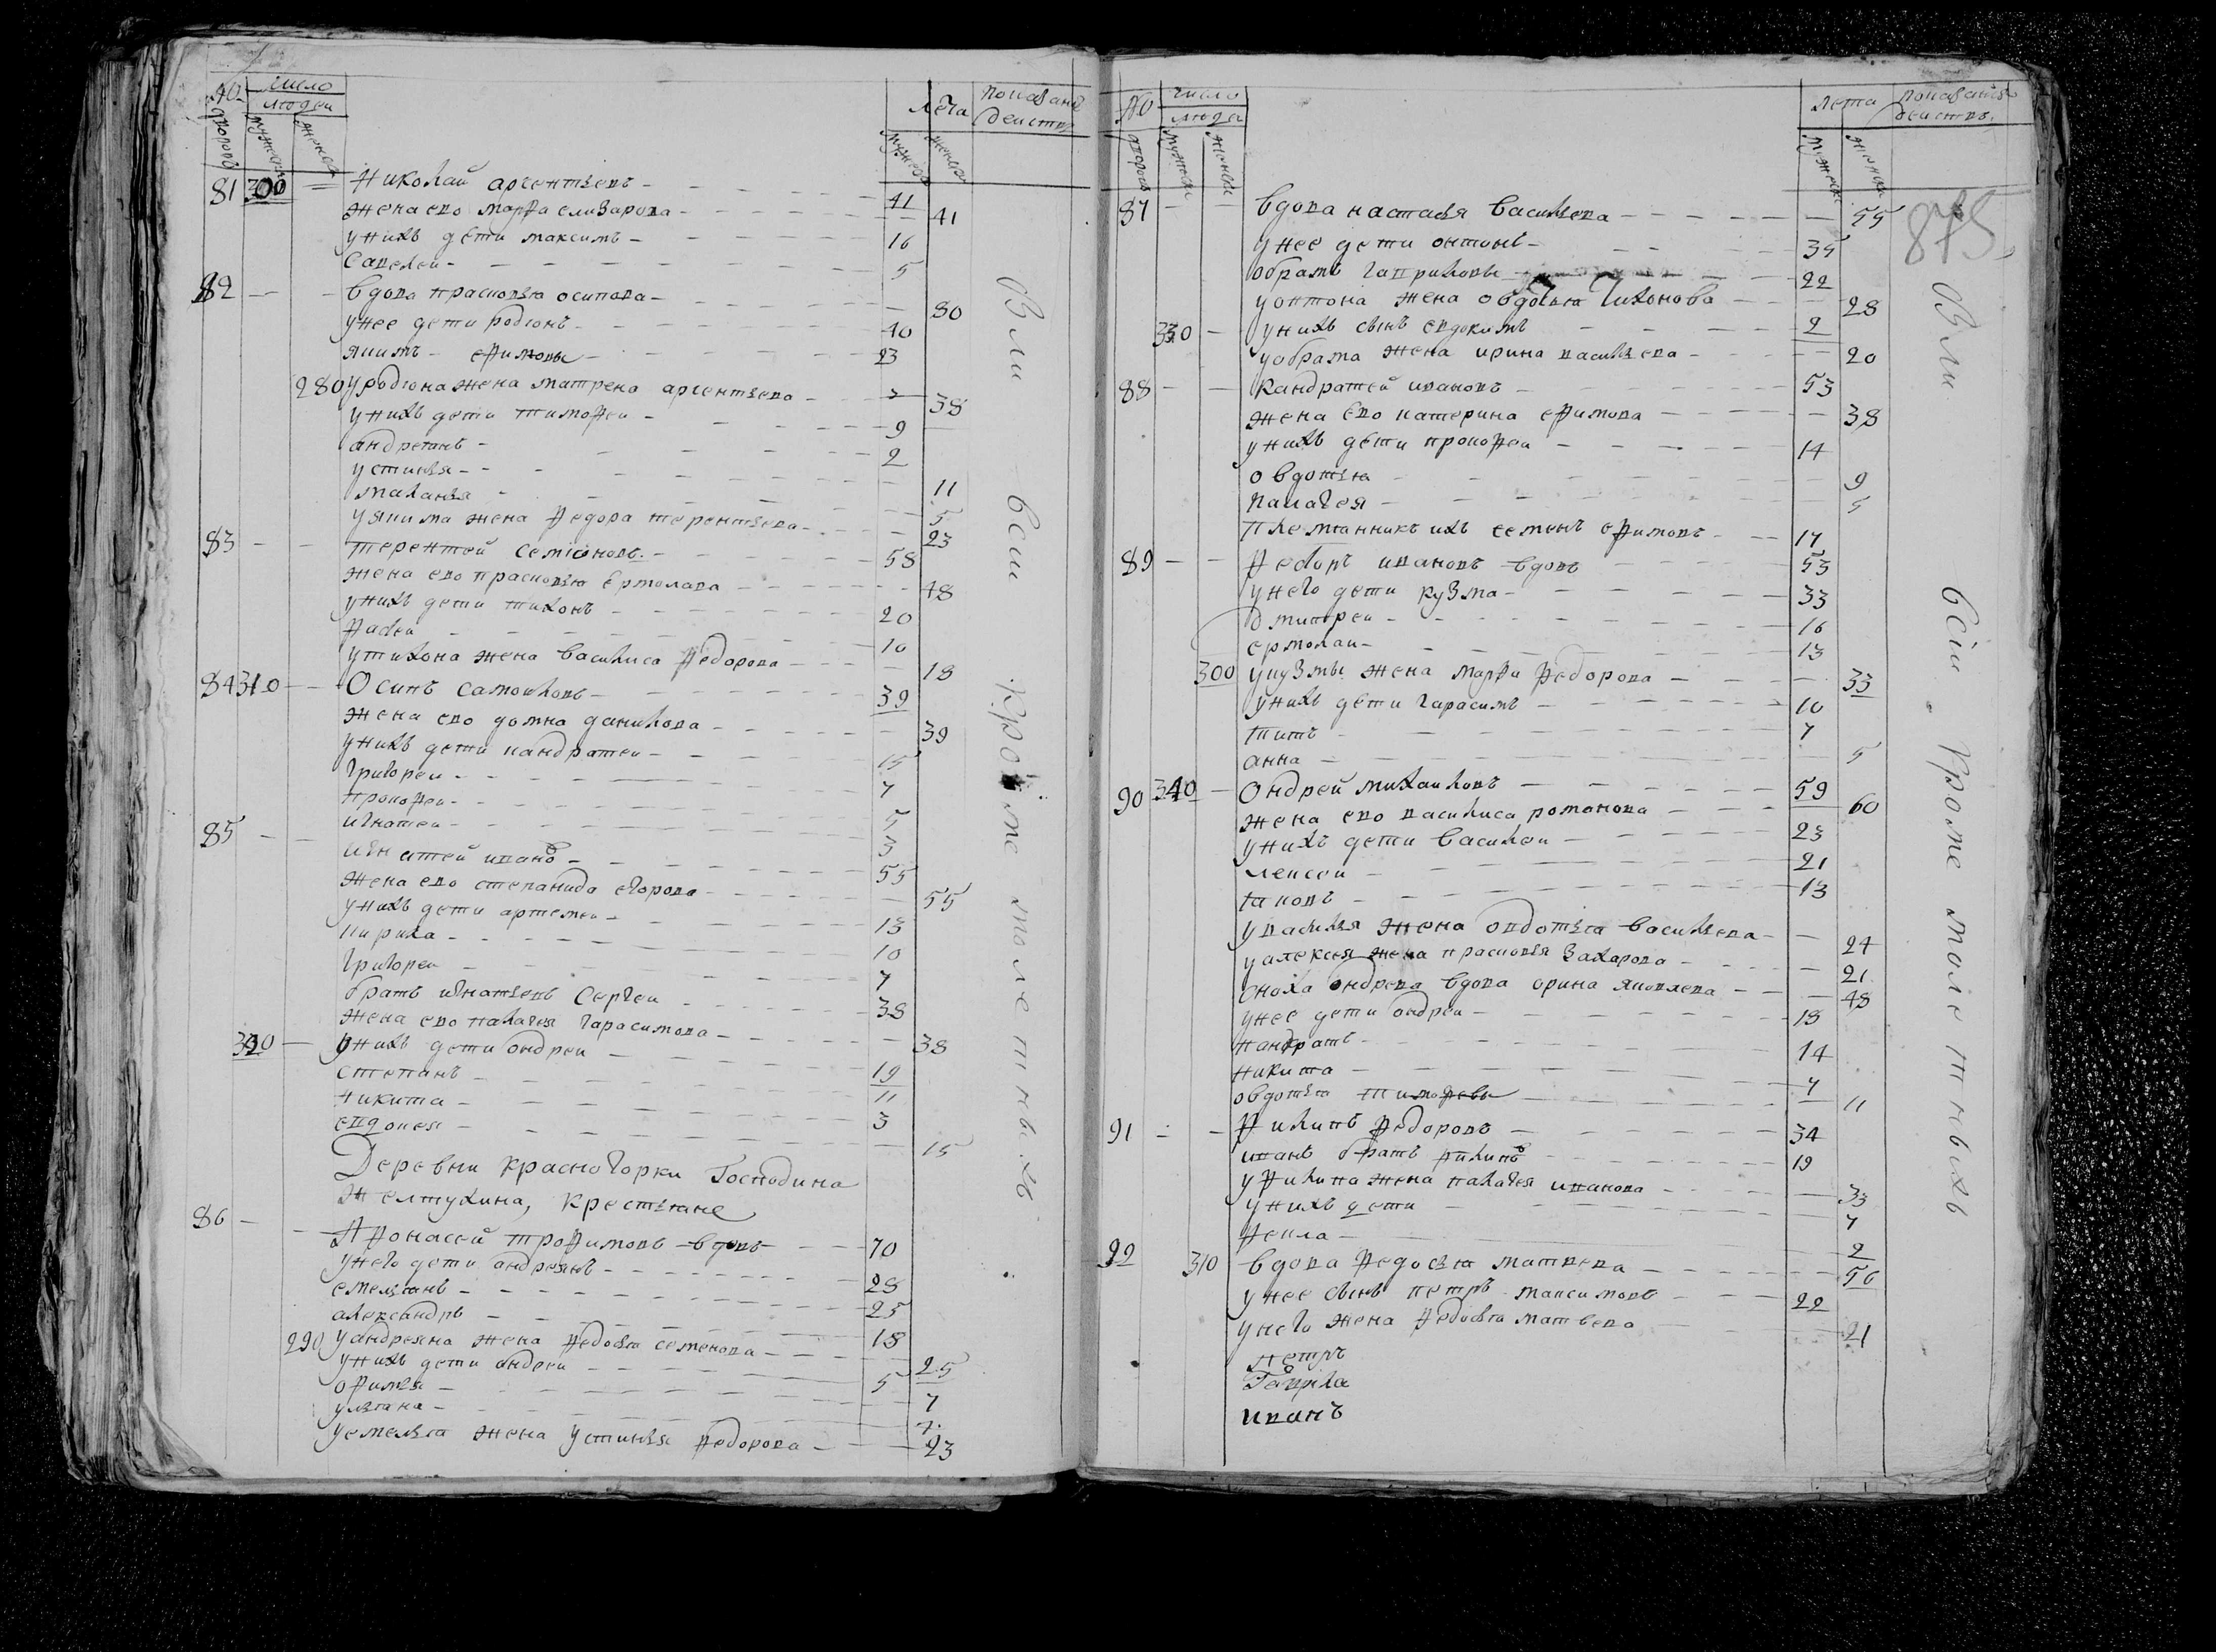 № дворовъ
число людей
мужеска
женска
лета
мужеска
женска
показание действ
81 300 Николай арентьевъ 41
жена ево марфа елизарова 41
у нихъ дети максимъ 16
савелеи 5
82 вдова прасковья осипова 80
у нее дети родіонъ 40
якимъ ефимовы 23
280 у родіона жена матрена арентьева 38
у нихъ дети тимофеи 9
андреянъ 2
устинья 11
маланья 5
у якима жена федора терентьева 23
83 терентей семіоновъ 58
жена ево прасковья ермолава 48
у нихъ дети тихонъ 20
фадеи 10
у тихона жена василиса федорова 18
84 310 Осипъ самоиловъ 39
жена ево домна данилова 39
у нихъ дети кандратеи 15
григореи 7
прокофеи 5
игнатеи 3
85 игнатей ивановъ 55
жена ево степанида егорова 55
у нихъ дети артемеи 13
кирила 10
григореи 7
братъ игнатьевъ сергеи 38
жена ево палагея гарасимова 38
320 у нихъ дети ондреи 19
степанъ 11
никита 3
евдокея 15
Деревни красногорки Господина
желтухина, крестьяне
86 Афонасей трофимовъ вдовъ 70
у него дети андреянъ 28
емельянъ 25
александръ 18
290 у андреяна жена федосья семенова 25
у нихъ дети ондреи 5
офимья 7
ульяна 7
у емельяна жена устинья федорова 23
были вси кроме молетныхъ
№ дворовъ
число людей
мужеска
женска
лета
мужеска
женска
показания действъ
875
87 вдова насталья васильева 55
у нее дети онтонъ 35
обрамъ гавриловы 22
у онтона жена овдотья тихонова 28
330 у нихъ сынъ евдокимъ 2
у обрама жена ирина васильева 20
88 кандратей ивановъ 53
жена ево катерина ефимова 38
у нихъ дети прокофеи 14
овдотья 9
палагея 5
племянникъ ихъ семенъ ефимовъ 17
89 федоръ ивановъ вдовъ 53
у него дети кузма 33
дмитреи 16
ермолаи 13
300 у кузмы жена марфа федорова 33
у нихъ дети гарасимъ 10
титъ 7
анна 5
90 340 Ондрей михаиловъ 59
жена ево василиса романова 60
у нихъ дети василеи 23
алексеи 21
яковъ 13
у василья жена овдотья васильева 24
у алексея жена прасковья захарова 21
сноха ондрева вдова орина яковлева 48
у нее дети ондреи 18
кандратъ 14
никита 7
овдотья тимофевы 11
91 Филипъ федоровъ 34
иванъ братъ филиповъ 19
у филипа жена палагея иванова 33
у нихъ дети 7
фекла 2
92 310 вдова федосья матвева 56
у нее сынъ петръ максимовъ 22
у него жена федосья матвева 21
петръ
Гаврила
иванъ
были всіи кроме молетныхъ